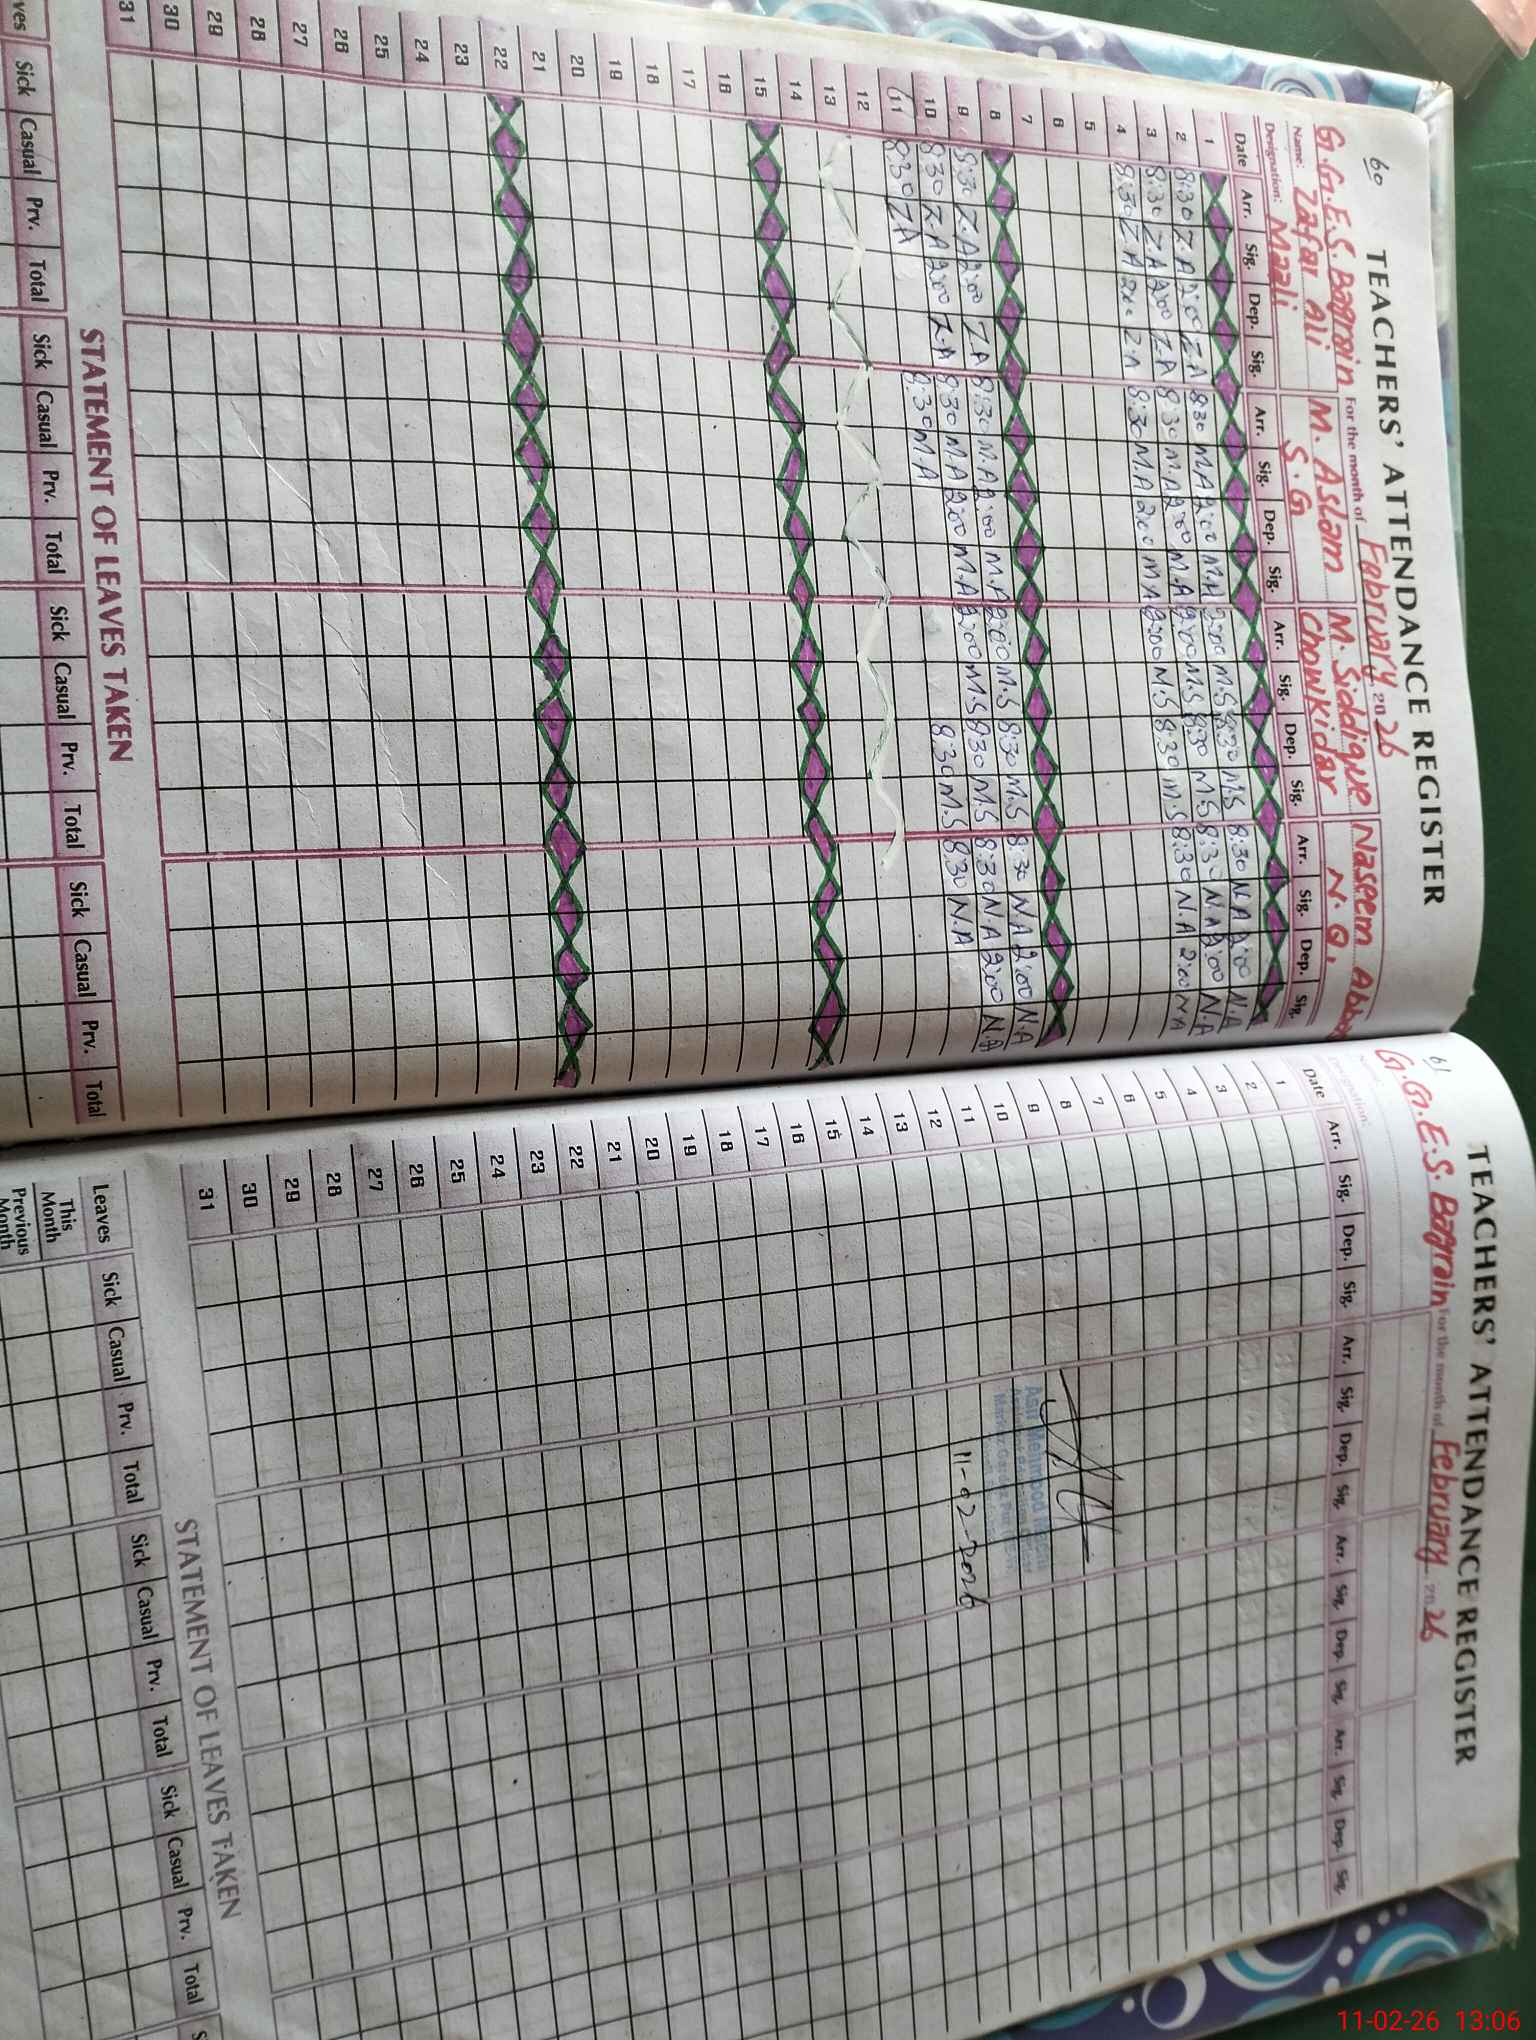 60
TEACHERS' ATTENDANCE REGISTER
G.G.E.S. Bagrain For the month of February 2026
Name: Zafar Ali M. Aslam M. Siddique Naseem Abbas
Designation: Maali S.G Chowkidar N.Q.
Date Arr. Sig. Dep. Sig. Arr. Sig. Dep. Sig. Arr. Sig. Dep. Sig. Arr. Sig. Dep. Sig.
1
2 8:30 Z.A 2:00 Z.A 8:30 M.A 2:00 M.A 2:00 M.S 8:30 M.S 8:30 N.A 2:00 N.A
3 8:30 Z.A 2:00 Z.A 8:30 M.A 2:00 M.A 2:00 M.S 8:30 M.S 8:30 N.A 2:00 N.A
4 8:30 Z.A Z.A 8:30 M.A 2:00 M.A 2:00 M.S 8:30 M.S 8:30 N.A 2:00 N.A
5
6
7
8
9 8:30 Z.A 2:00 Z.A 8:30 M.A 2:00 M.A 2:00 M.S 8:30 M.S 8:30 N.A 2:00 N.A
10 8:30 Z.A 2:00 Z.A 8:30 M.A 2:00 M.A 2:00 M.S 8:30 M.S 8:30 N.A 2:00 N.A
11 8:30 Z.A 8:30 M.A 8:30 M.S 8:30 N.A
12
13
14
15
16
17
18
19
20
21
22
23
24
25
26
27
28
29
30
31
STATEMENT OF LEAVES TAKEN
ves Sick Casual Prv. Total Sick Casual Prv. Total Sick Casual Prv. Total Sick Casual Prv. Total
61
TEACHERS' ATTENDANCE REGISTER
G.G.E.S. Bagrain For the month of February 2026
Designation:
Date Arr. Sig. Dep. Sig. Arr. Sig. Dep. Sig. Arr. Sig. Dep. Sig. Arr. Sig. Dep. Sig.
1
2
3
4
5
6
7
8
9
10
11
12
13
14
15
16
17
18
19
20
21
22
23
24
25
26
27
28
29
30
31
Asif Mehmood
11-02-2026
STATEMENT OF LEAVES TAKEN
Leaves Sick Casual Prv. Total Sick Casual Prv. Total Sick Casual Prv. Total S
This Month
Previous Month
11-02-26 13:06